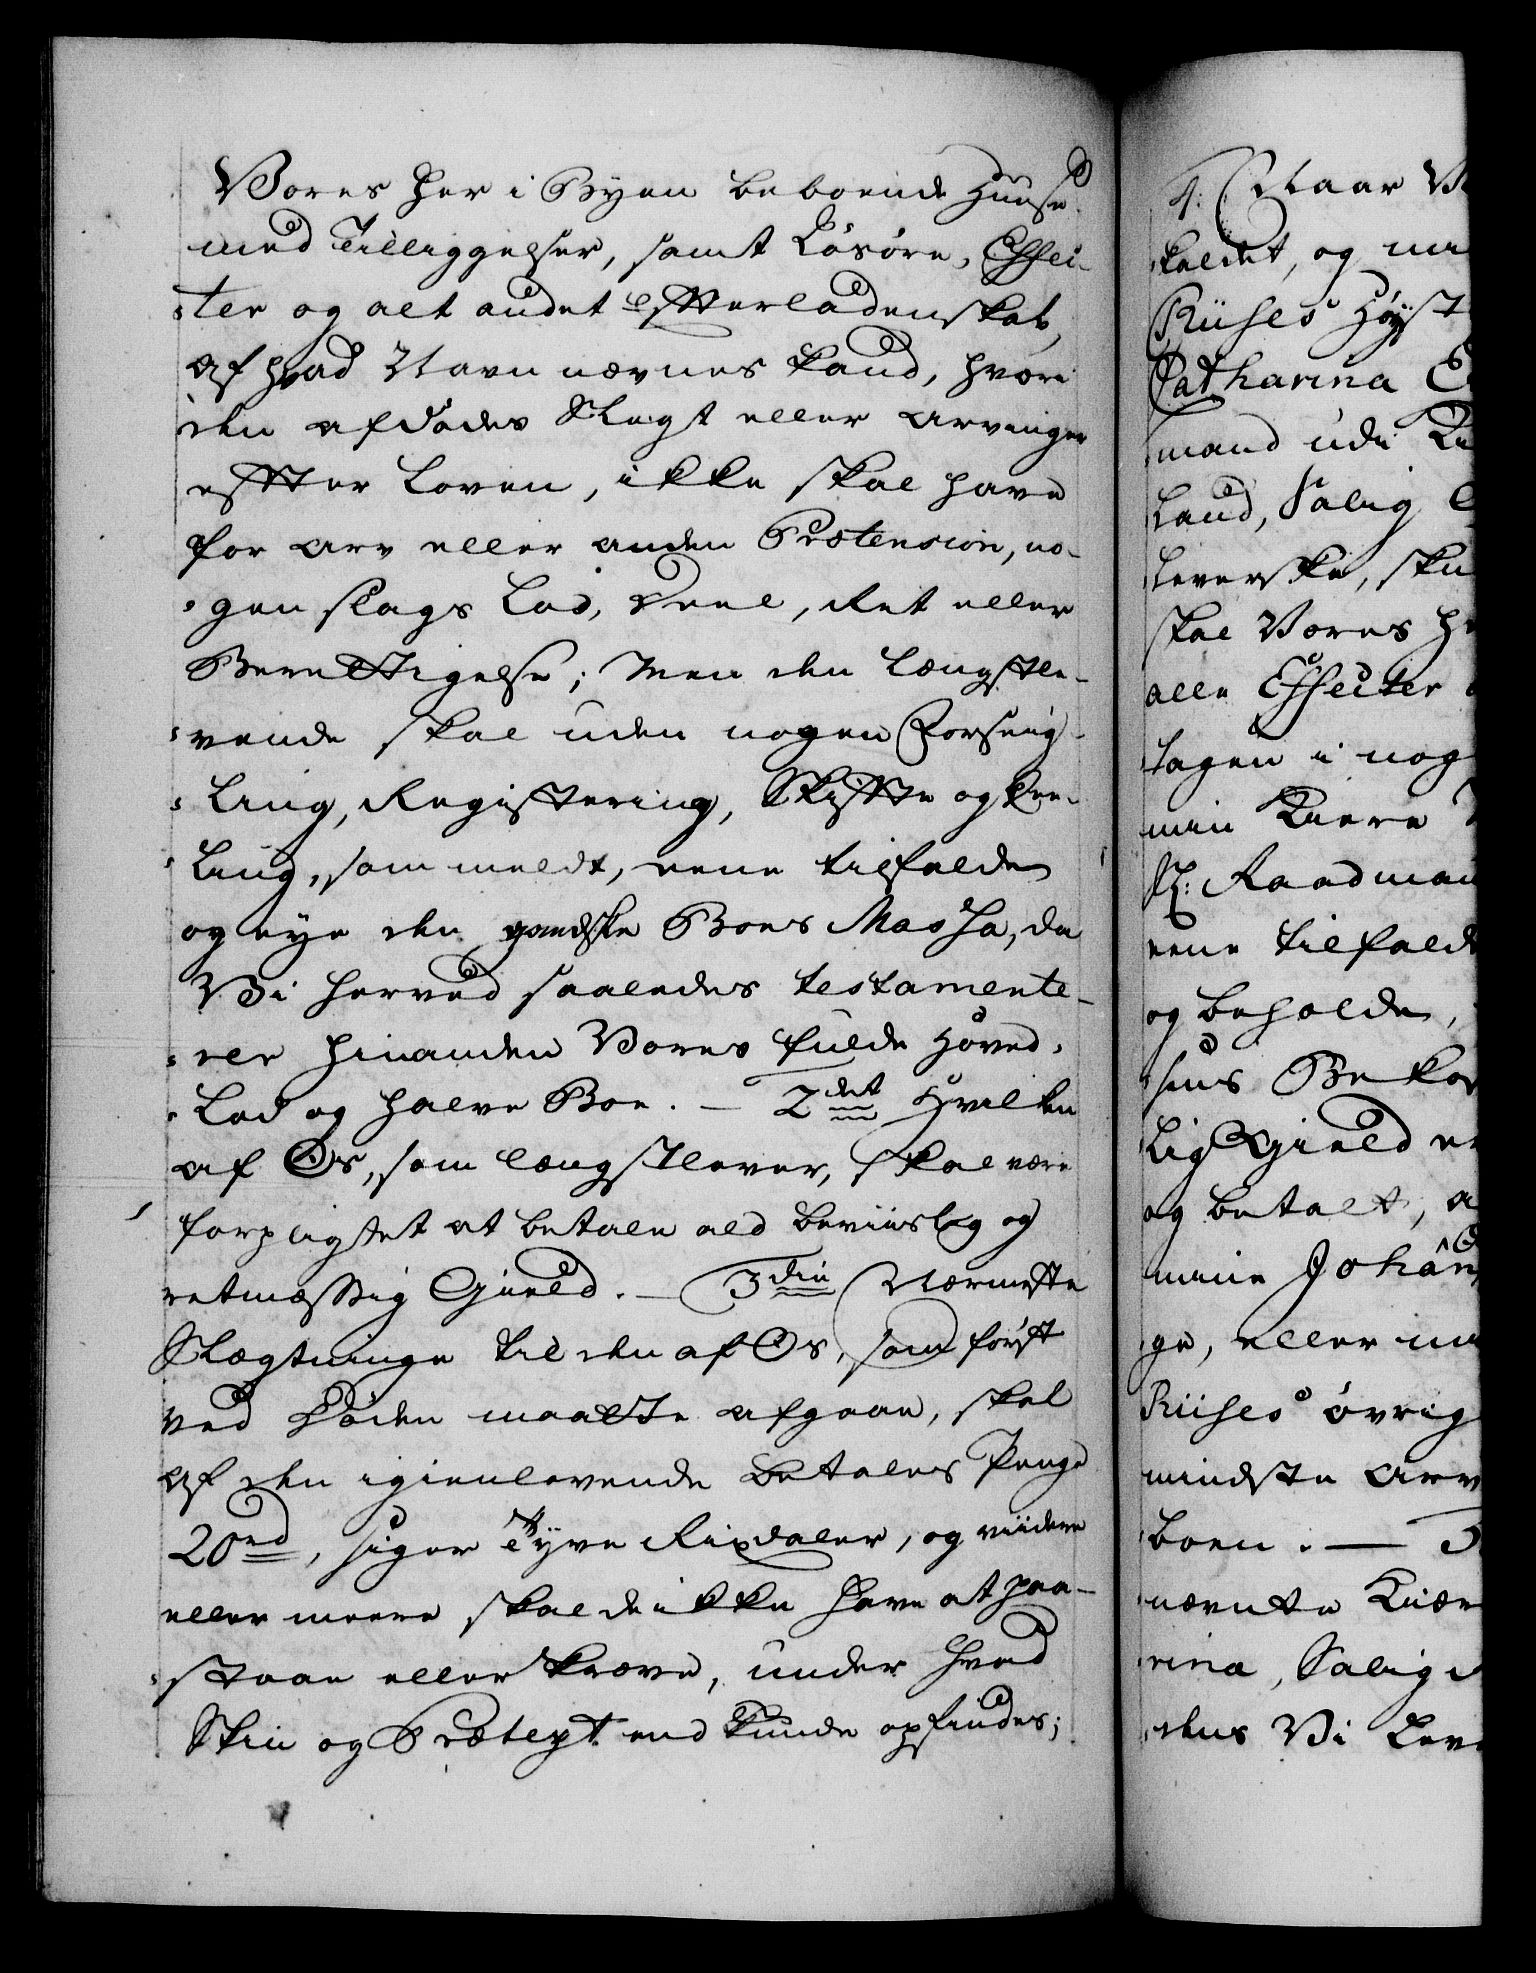 Vores her i Byen beboende Huuse
med Tilliggelser, samt Løsøre, Effec-
ter og alt andet efterladenskab,
af hvad Navn nævnes kand, hvori
den afdødes Slegt eller Arvinger
effter Loven, ikke skal have
for Arv eller anden Prætension, no-
gen slags Lod, Deel, Ret eller
Berettigelse; Men den Længstle-
vende skal uden nogen Forseig-
ling, Registering, Skiffte og Dee-
ling, som meldt, eene tilfalde
og eye den gandske Boes Massa, da
Vi herved saaledes testamente-
rer hinanden Vores fulde Hoved-
Lod og halve Boe. — 2det Hvilken
af Os, som længstlever, skal være
forpligtet at betale ald beviislig og
retmæssig Gield. — 3die Nærmeste
Slægtninge til den af Os, som først
ved Døden maatte afgaae, skal
af den igienlevende betales Penge
20rd, siger Tyve Rixdaler, og viidere
eller meere skal de ikke have at paa-
staae eller kræve, under hvad
Skin og Prætext end kunde opfindes;
4: Naar
kaldet, og
Riises Høyst
Catharina
mand udi
Land, Salig
leverske,
skal Vores
alle Effecter
tagen i nog
min Kiere
Sl: Raadman
eene tilfalde
og beholde,
hans Bekos
lig Gield
og betalt,
mine Johan
ge, eller
Riises øvrig
mindste Arv
boen. —
nævnte Kiær
rina, Salig
dens Vi Lev